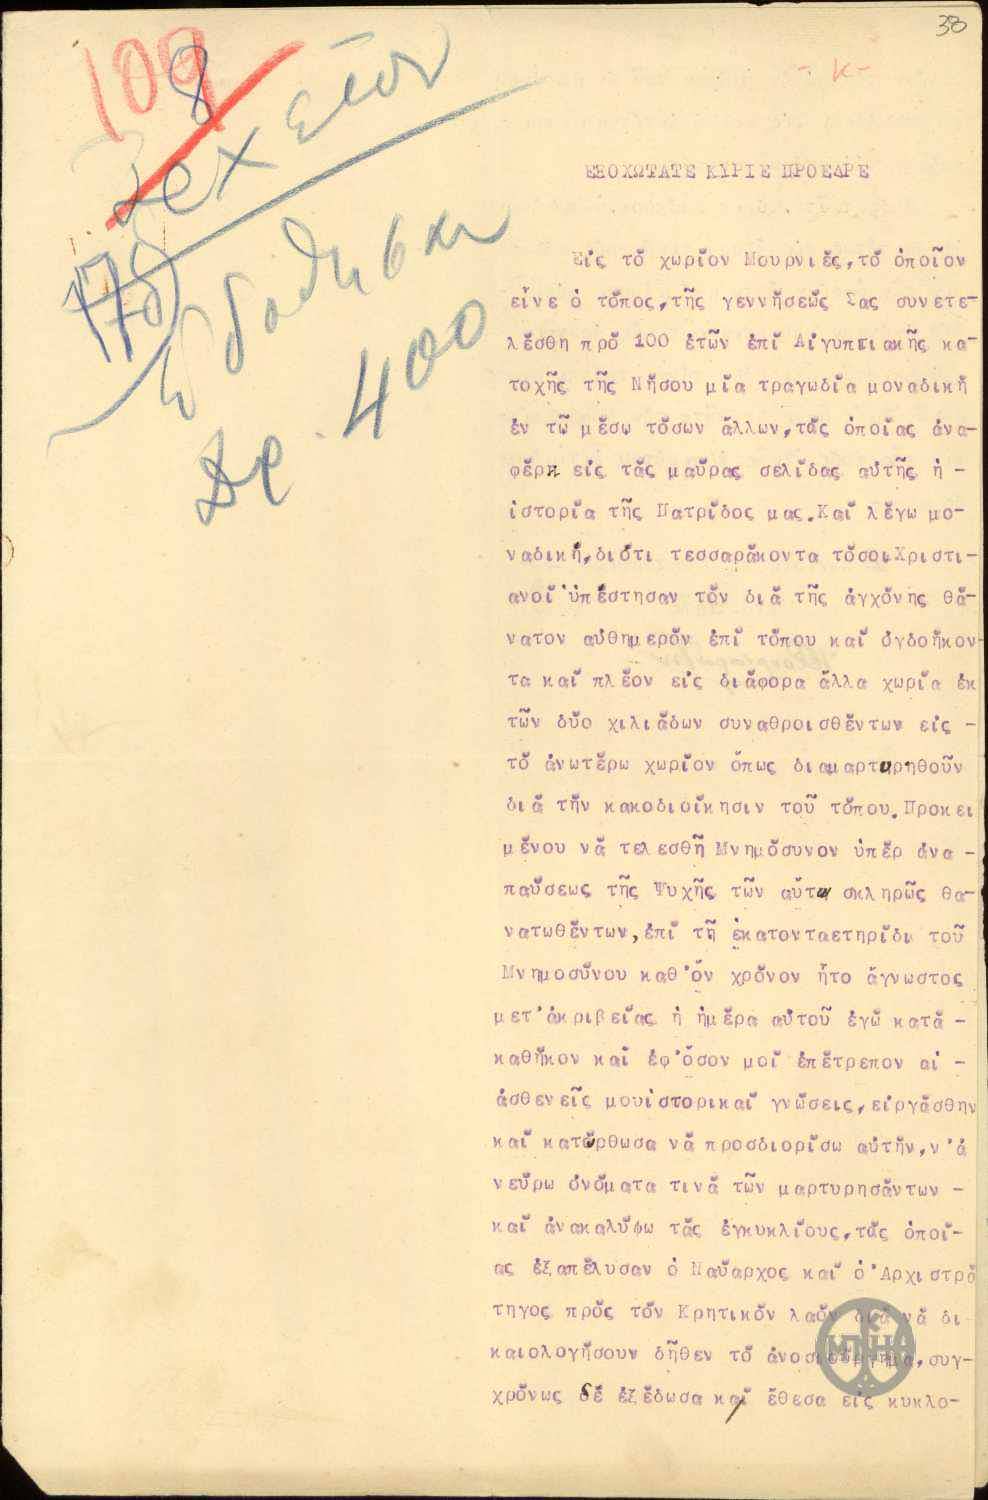 38
109
8
- κ -
Αρχεῖον
178
ἐδόθησαν
Δρ. 400
ΕΞΟΧΩΤΑΤΕ ΚΥΡΙΕ ΠΡΟΕΔΡΕ
Εἰς τό χωρίον Μουρνιές, τό ὁποῖον
εἶνε ὁ τόπος, τῆς γεννήσεώς Σας συνετε-
λέσθη πρό 100 ἐτῶν ἐπί Αἰγυπτιακῆς κα-
τοχῆς τῆς Νήσου μία τραγωδία μοναδική
ἐν τῶ μέσω τόσων ἄλλων, τάς ὁποίας ἀνα-
φέρη εἰς τάς μαύρας σελίδας αὐτῆς ἡ -
ἱστορία τῆς Πατρίδος μας. Καί λέγω μο-
ναδική, διότι τεσσαράκοντα τόσοι Χριστι-
ανοί ὑπέστησαν τόν διά τῆς ἀγχόνης θά-
νατον αὐθημερόν ἐπί τόπου καί ὀγδοήκον
τα καί πλέον εἰς διάφορα ἄλλα χωρία ἐκ
τῶν δύο χιλιάδων συναθροισθέντων εἰς -
τό ἀνωτέρω χωρίον ὅπως διαμαρτυρηθοῦν
διά τήν κακοδιοίκησιν τοῦ τόπου. Προκει
μένου νά τελεσθῆ Μνημόσυνον ὑπέρ ἀνα -
παύσεως τῆς Ψυχῆς τῶν αὕτω σκληρῶς θα-
νατωθέντων, ἐπί τῆ ἑκατονταετηρίδι τοῦ
Μνημοσύνου καθ' ὅν χρόνον ἦτο ἄγνωστος
μετ' ἀκριβείας ἡ ἡμέρα αὐτοῦ ἐγώ κατά -
καθῆκον καί ἐφ' ὅσον μοί ἐπέτρεπον αἱ -
ἀσθενεῖς μου ἱστορικαί γνώσεις, εἰργάσθην
καί κατώρθωσα νά προσδιορίσω αὐτήν, ν' ἀ
νεύρω ὀνόματα τινά τῶν μαρτυρησάντων -
καί ἀνακαλύψω τάς ἐγκυκλίους, τάς ὁποί-
ας ἐξαπέλυσαν ὁ Ναύαρχος καί ὁ Ἀρχιστρά
τηγος πρός τόν Κρητικόν λαόν διά νά δι
καιολογήσουν δῆθεν τό ἀνοσιούργημα, συγ-
χρόνως δέ ἐξέδωσα καί ἔθεσα εἰς κυκλο-
ΜΠΗ